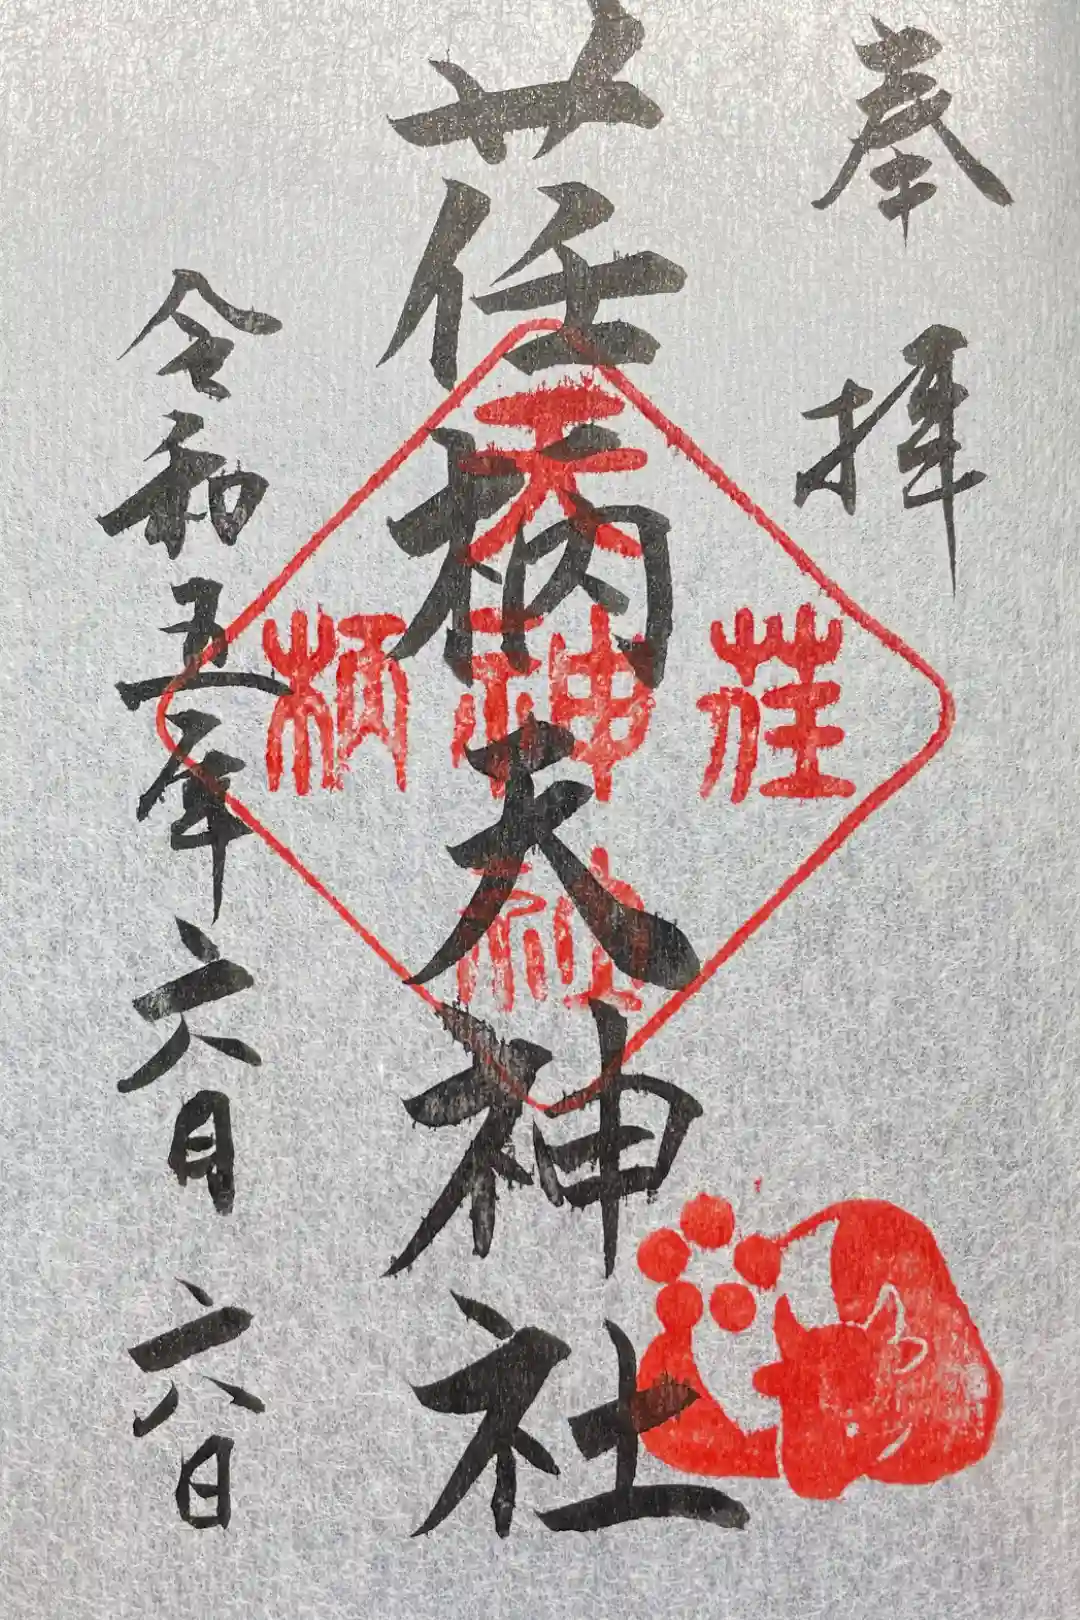 奉拝
荏柄天神社
令和五年六月六日
天
荏神柄
社